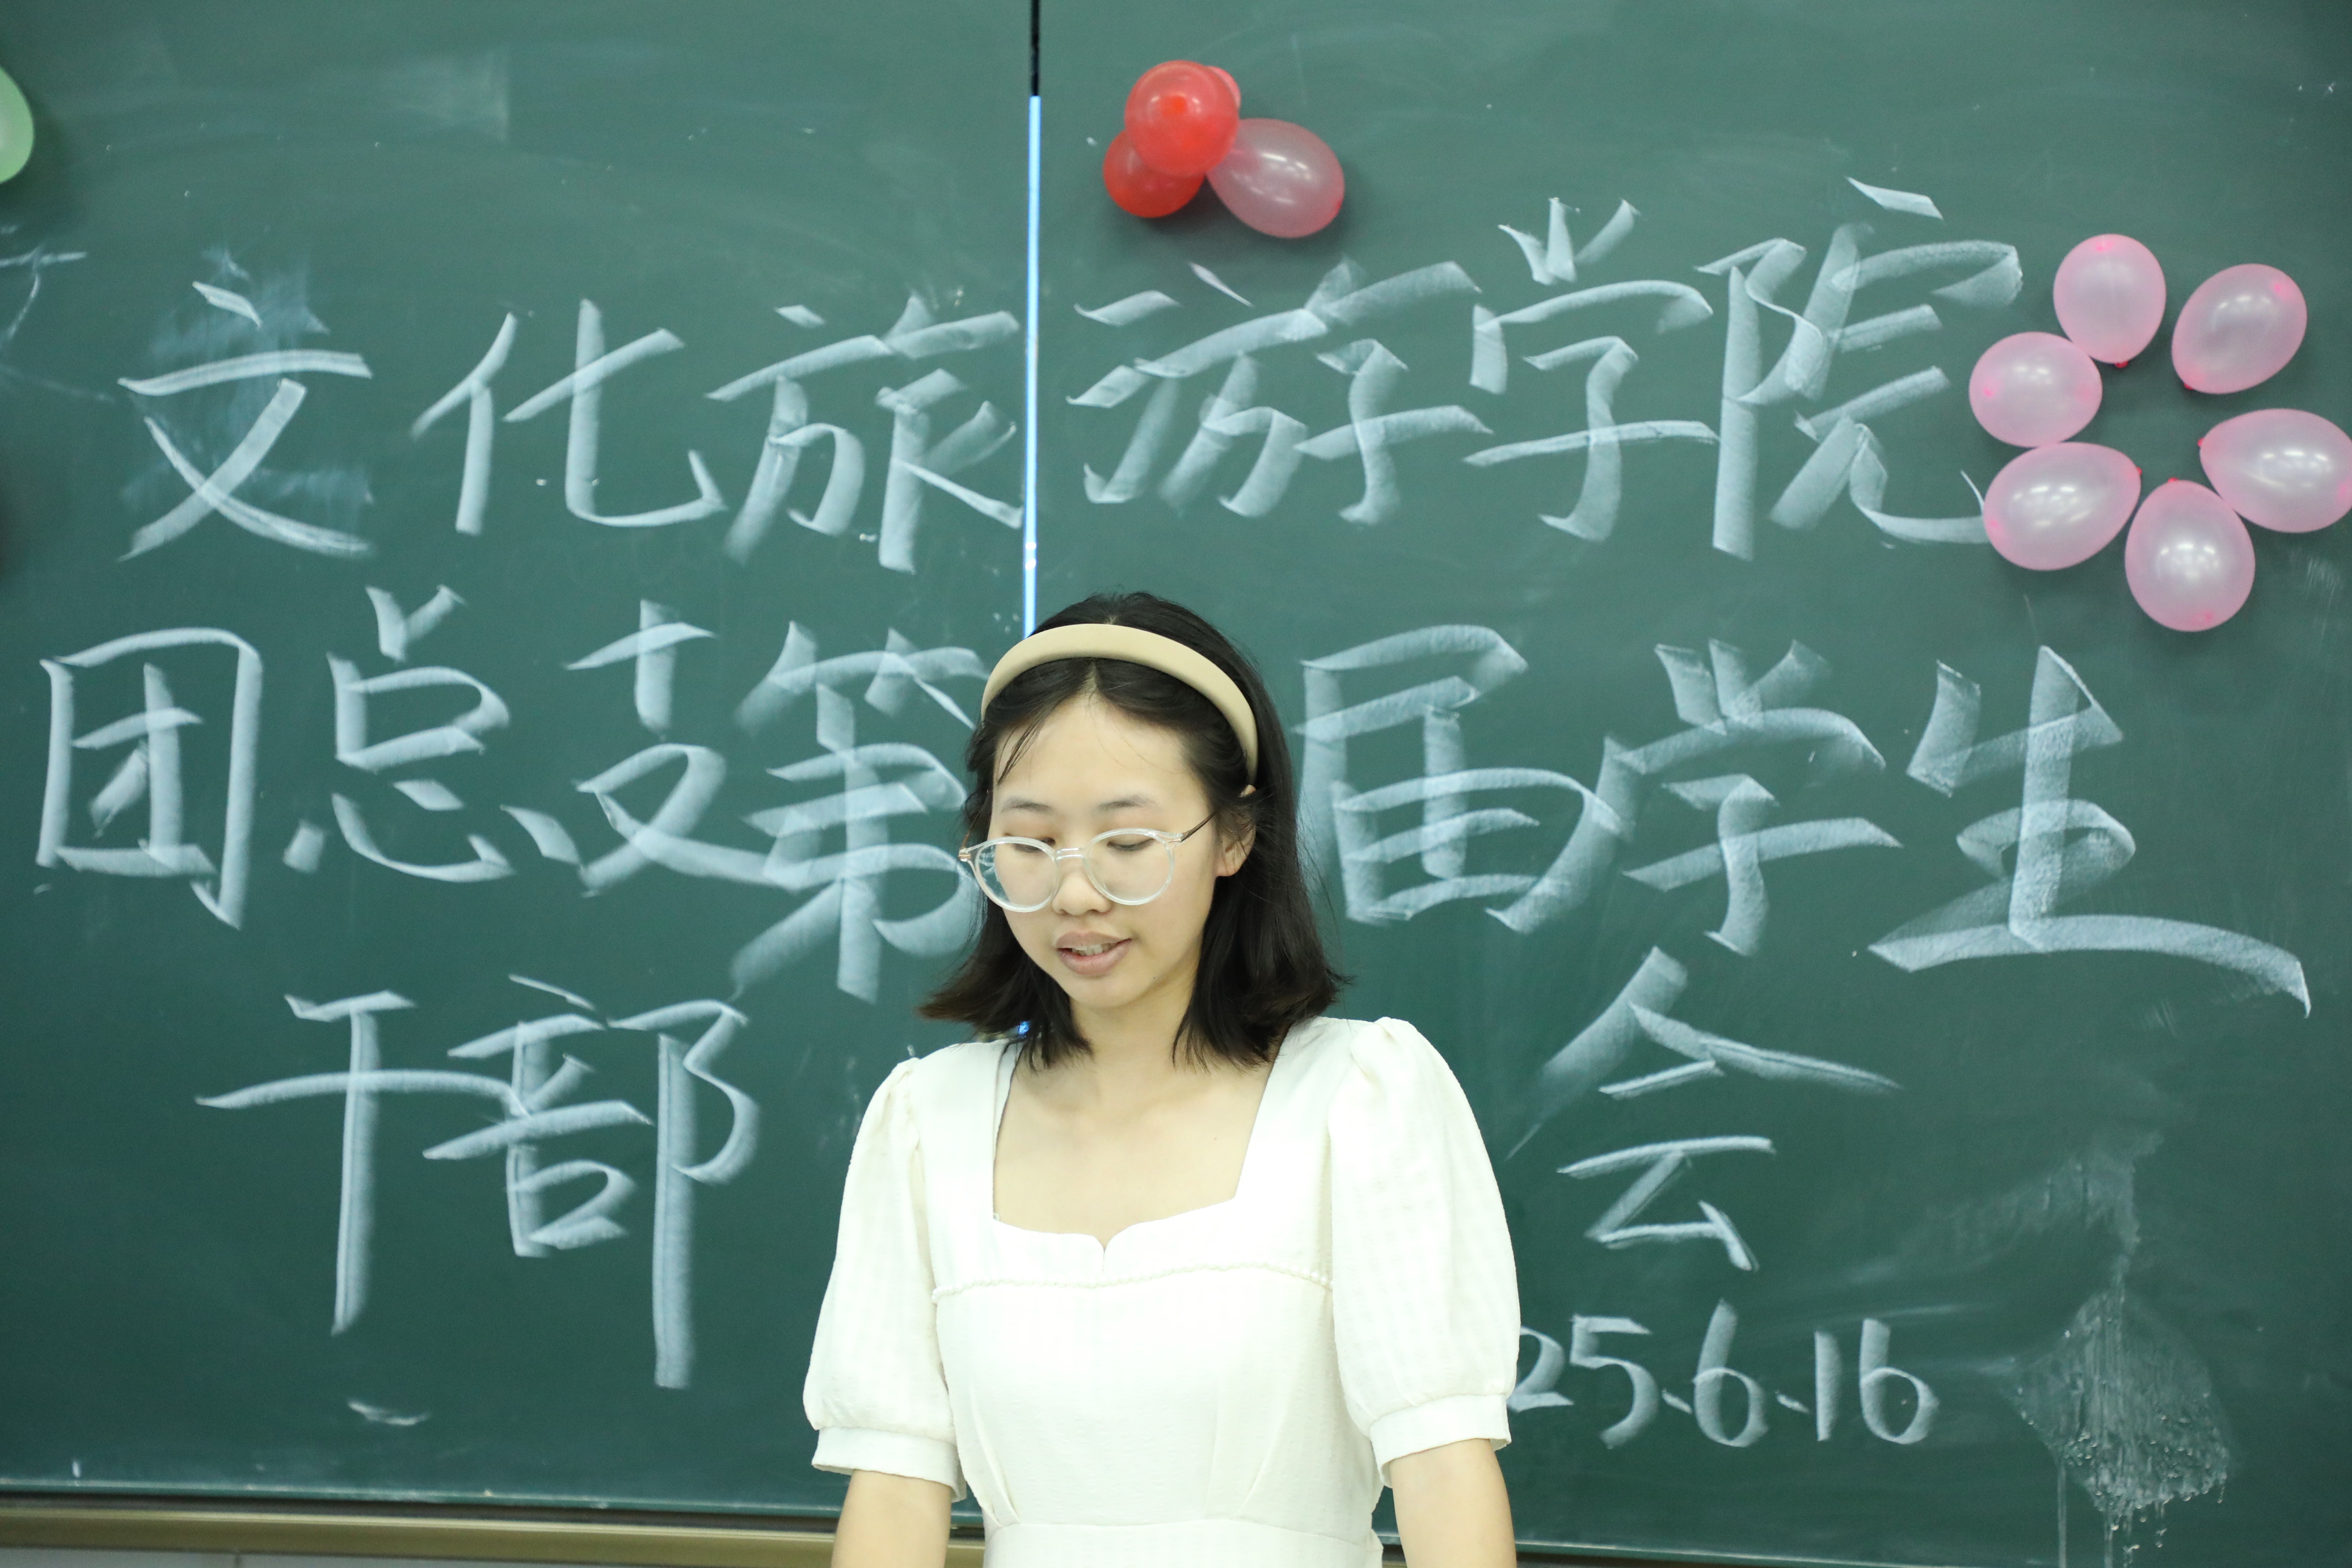 文化旅游学院
团总支第 届学生
干部 会
25.6.16